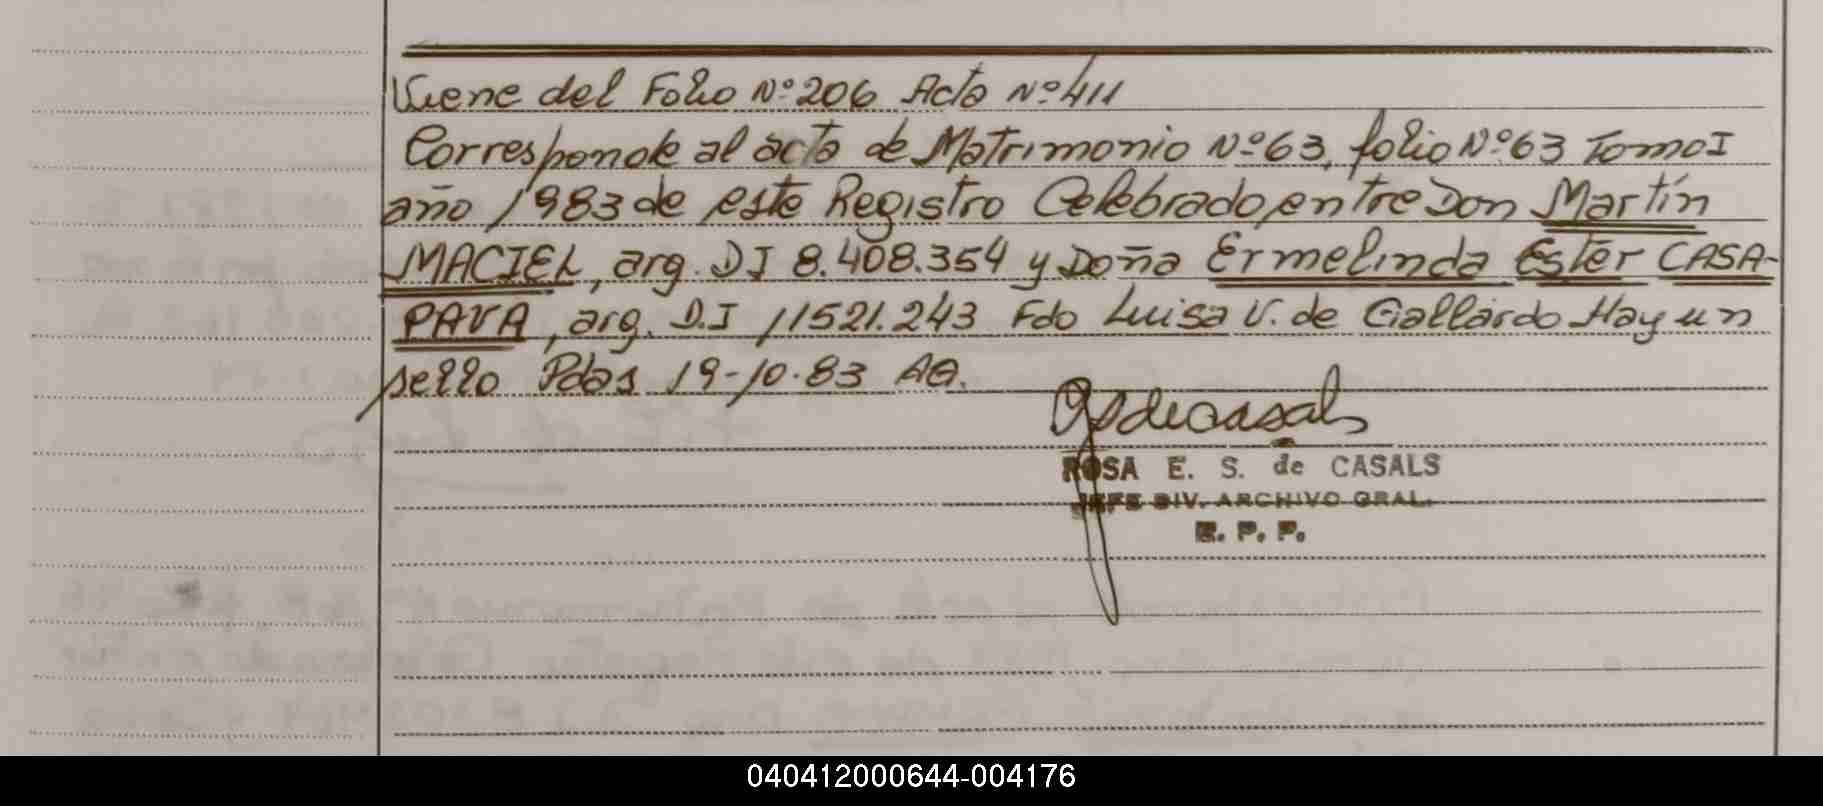 Viene del Folio Nº 206 Acta Nº 411
Corresponde al acta de Matrimonio Nº 63, folio Nº 63 Tomo I
año 1983 de este Registro Celebrado entre Don Martín
MACIEL, arg. DI 8.408.354 y Doña Ermelinda Ester CASA-
PAVA, arg. D.I 11521.243 Fdo Luisa V. de Gallardo Hay un
sello Pdas 19-10-83 AQ.
ROSA E. S. de CASALS
JEFE DIV. ARCHIVO GRAL.
R. P. P.
040412000644-004176